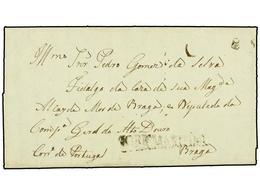 Illmo Snr Pedro Gomes da Silva
Fidalgo da Caza de Sua Magde
Alcayde Mor de Braga, e Deputado da
Comp. Geral do Alto Douro
Corro de Portugal
Braga